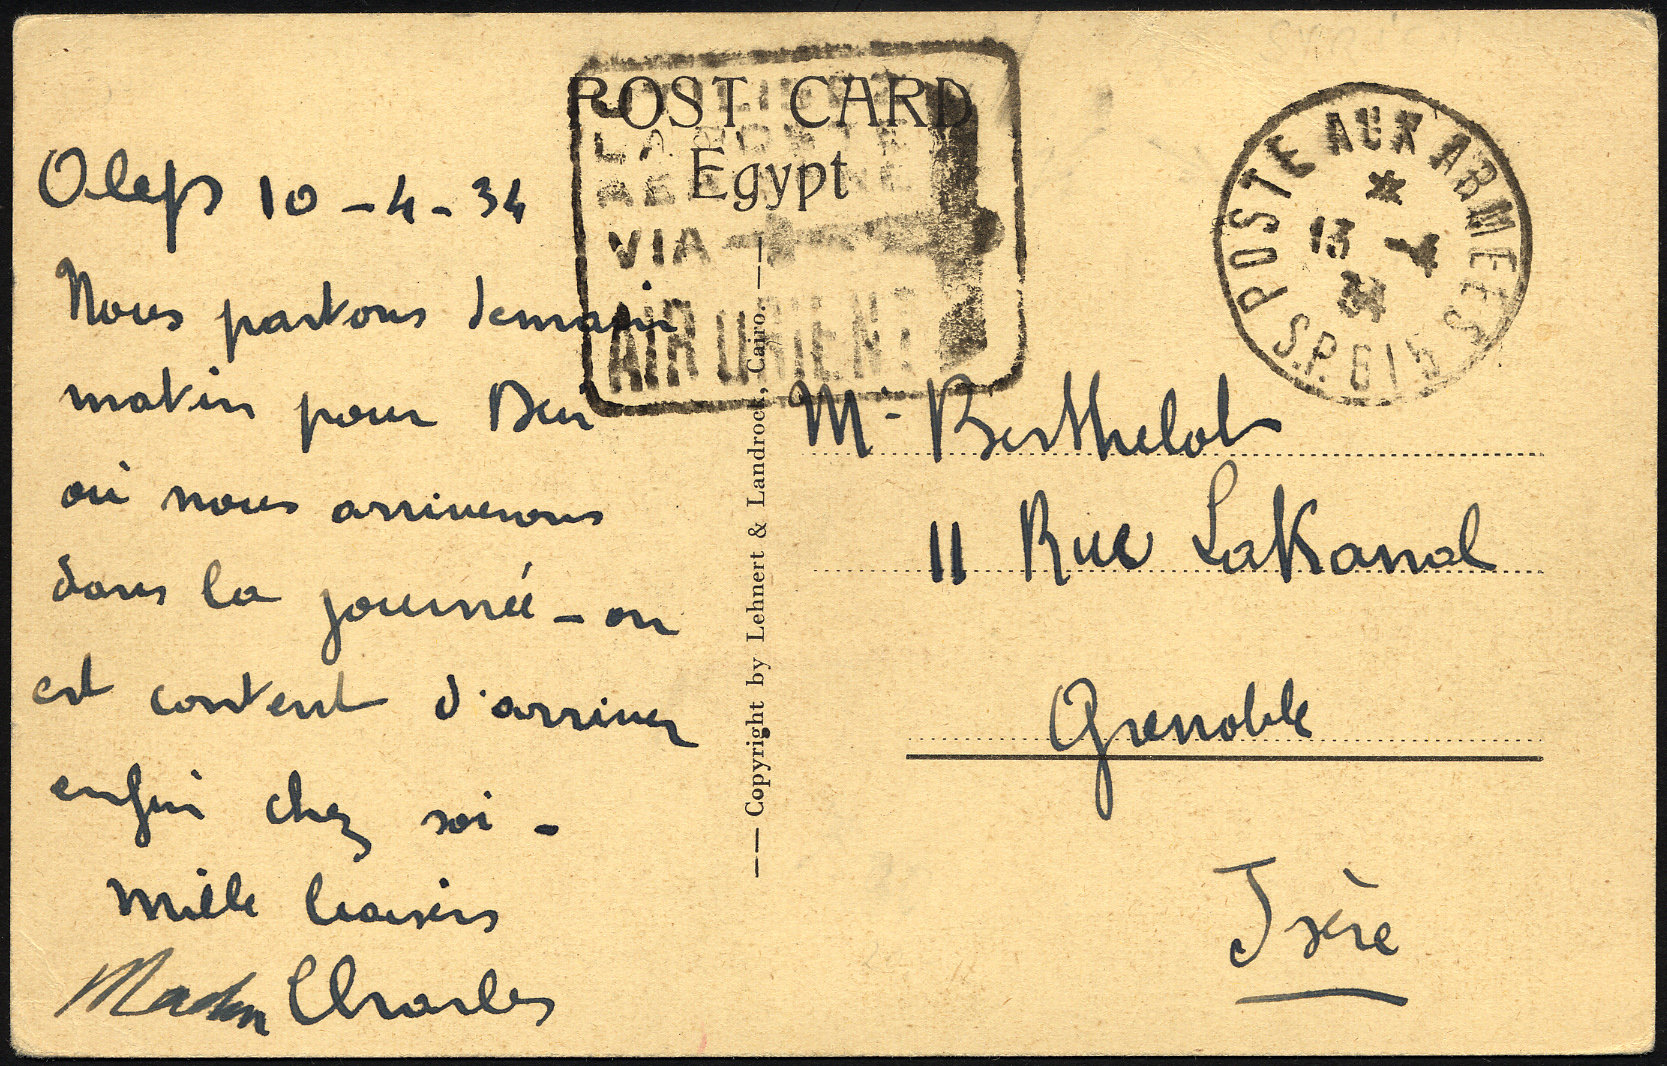 POST CARD
Egypt
LA POSTE
VIA
AIR ORIENT
POSTE AUX ARMEES
*
13 -4
34
S.P. 615
Alep 10-4-34
Nous partons demain
matin pour Deir
où nous arriverons
dans la journée - on
est content d'arriver
enfin chez soi -
Mille baisers
Charles
— Copyright by Lehnert & Landrock, Cairo. —
Mr Berthelot
11 Rue Lakanal
Grenoble
Isère